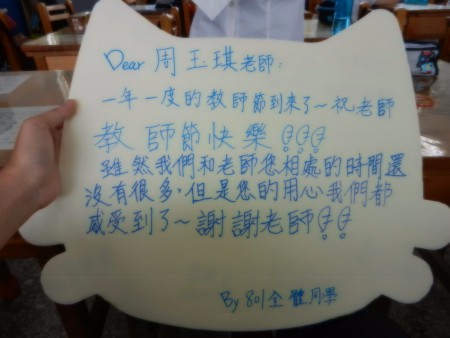 Dear 周玉琪老師:
一年一度的教師節到來了~祝老師
教師節快樂!!!
雖然我們和老師您相處的時間還
沒有很多,但是您的用心我們都
感受到了~謝謝老師!!
By 801全體同學